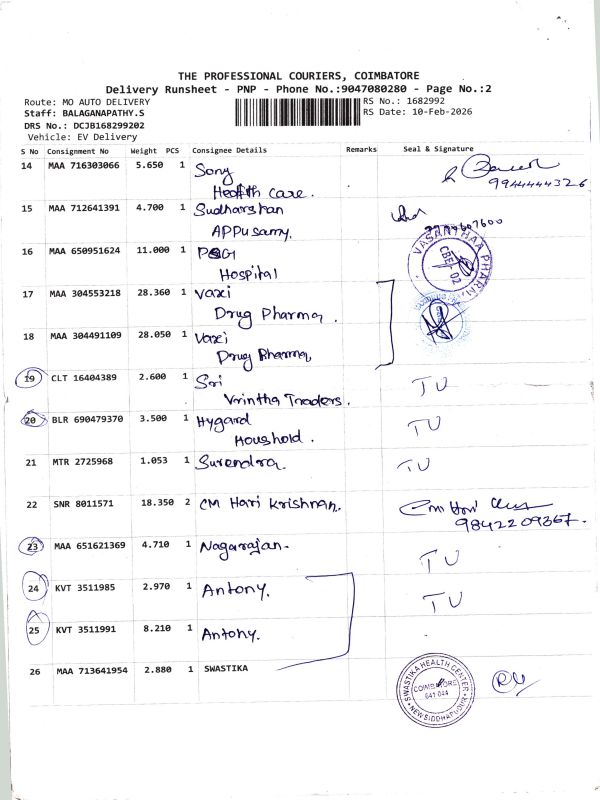 THE PROFESSIONAL COURIERS, COIMBATORE
Delivery Runsheet - PNP - Phone No.:9047080280 - Page No.:2
Route: MO AUTO DELIVERY
RS No.: 1682992
Staff: BALAGANAPATHY.S
RS Date: 10-Feb-2026
DRS No.: DCJB168299202
Vehicle: EV Delivery
S No Consignment No Weight PCS Consignee Details Remarks Seal & Signature
14 MAA 716303066 5.650 1 Sony
Health Care.
9944444326
15 MAA 712641391 4.700 1 Sudharshan
APPusamy.
16 MAA 650951624 11.000 1
Hospital
VASANTHAA PHARM
CBE 02
17 MAA 304553218 28.360 1 Vaxi
Drug Pharma.
18 MAA 304491109 28.050 1 Vaxi
Drug Pharma
19 CLT 16404389 2.600 1 Sri
Vrintha Traders. TU
20 BLR 690479370 3.500 1 Hygard
Houshold. TU
21 MTR 2725968 1.053 1 Surendra. TU
22 SNR 8011571 18.350 2 CM Hari Krishnan.
9842209367.
23 MAA 651621369 4.710 1 Nagarajan. TU
24 KVT 3511985 2.970 1 Antony. TU
25 KVT 3511991 8.210 1 Antony.
26 MAA 713641954 2.880 1 SWASTIKA
SWASTIKA HEALTH CENTER
COIMBATORE
641 044
NEW SIDDHAPUDUR